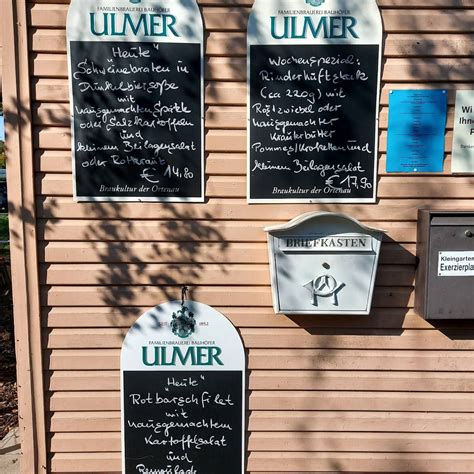 FAMILIENBRAUEREI BAUHÖFER
ULMER
"Heute"
Schweinebraten in
Dunkelbiersoße
mit
hausgemachten Spätzle
oder Salzkartoffeln
und
kleinem Beilagensalat
oder Rotkraut
€ 14,80
Braukultur der Ortenau
FAMILIENBRAUEREI BAUHÖFER
ULMER
Wochenspezial:
Rinderhüftsteak
(ca 220g) mit
Röstzwiebel oder
hausgemachter
Kräuterbutter
Pommes/Kroketten und
kleinem Beilagensalat
€ 17,90
Braukultur der Ortenau
Wi
Ihne
BRIEFKASTEN
Kleingarten
Exerzierplat
SEIT 1852
FAMILIENBRAUEREI BAUHÖFER
ULMER
"Heute"
Rotbarschfilet
mit
hausgemachtem
Kartoffelsalat
und
Remoulade